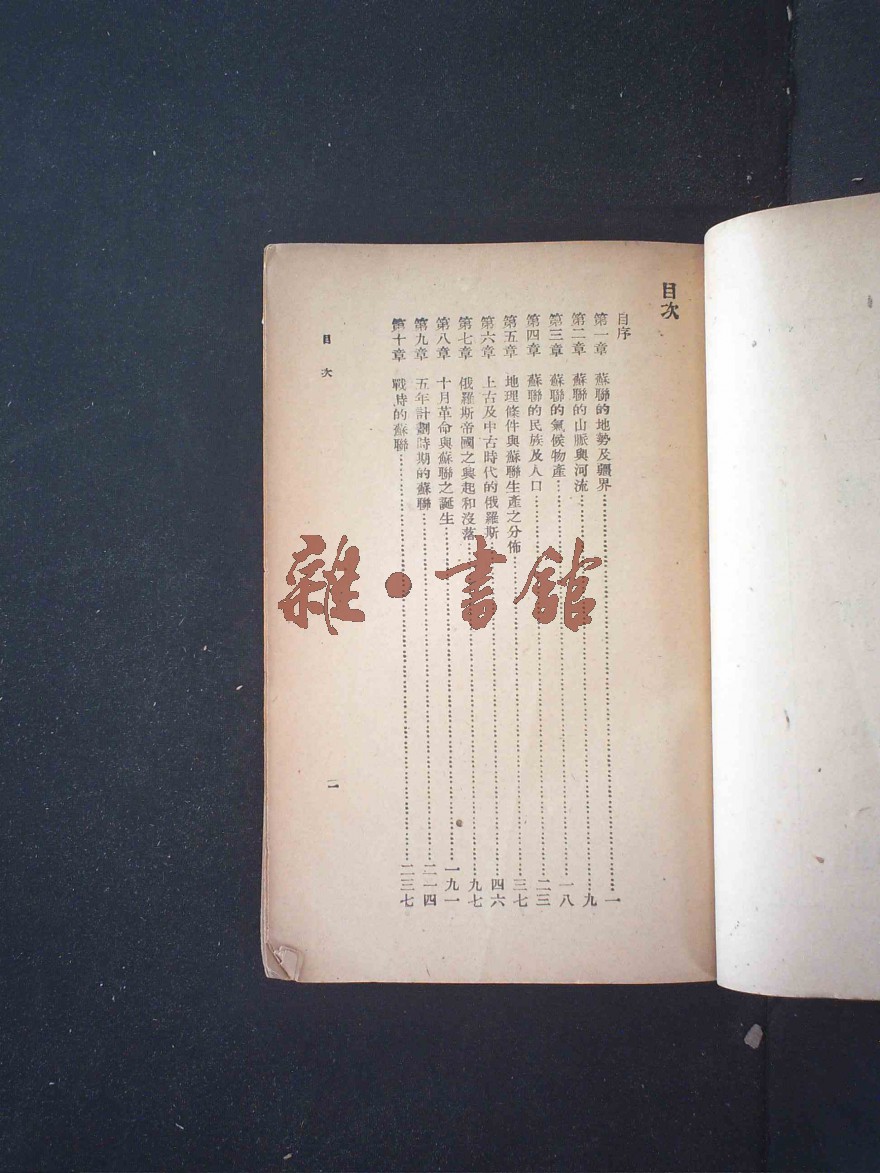 目次
自序
第一章 蘇聯的地勢及疆界……一
第二章 蘇聯的山脈與河流……九
第三章 蘇聯的氣候物產……一八
第四章 蘇聯的民族及人口……二三
第五章 地理條件與蘇聯生產之分佈……三七
第六章 上古及中古時代的俄羅斯……四六
第七章 俄羅斯帝國之興起和沒落……九七
第八章 十月革命與蘇聯之誕生……一九一
第九章 五年計劃時期的蘇聯……二一四
第十章 戰時的蘇聯……二三七
目次
二
雜·書館